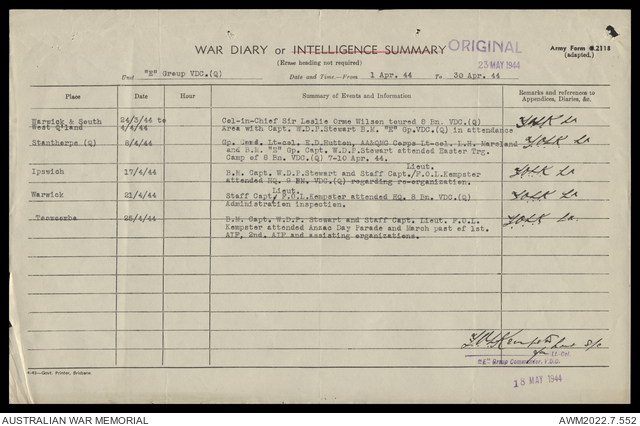 WAR DIARY or INTELLIGENCE SUMMARY
ORIGINAL
Army Form C.2118
(adapted.)
(Erase heading not required)
23 MAY 1944
Unit "E" Group VDC.(Q) Date and Time.—From 1 Apr. 44 To 30 Apr. 44
Place Date Hour Summary of Events and Information Remarks and references to Appendices, Diaries, &c.
Warwick & South 24/3/44 to Col-in-Chief Sir Leslie Orme Wilson toured 8 Bn. VDC.(Q)
West Q'land 4/4/44 Area with Capt. W.D.P.Stewart B.M. "E" Gp.VDC.(Q) in attendance
Stanthorpe (Q) 8/4/44 Gp. Comd. Lt-col. E.D.Hutton, AA&QMG Corps Lt-col. L.H.
and B.M. "E" Gp. Capt. W.D.P.Stewart attended Easter Trg.
Camp of 8 Bn. VDC.(Q) 7-10 Apr. 44.
Lieut.
Ipswich 17/4/44 B.M. Capt. W.D.P.Stewart and Staff Capt./F.O.L.Kempster
attended HQ. 9 BN. VDC.(Q) regarding re-organization.
Lieut.
Warwick 21/4/44 Staff Capt/ F.O.L.Kempster attended HQ. 8 Bn. VDC.(Q)
Administration inspection.
Toowoomba 25/4/44 B.M. Capt. W.D.P. Stewart and Staff Capt. Lieut. F.O.L.
Kempster attended Anzac Day Parade and March past of 1st.
AIF, 2nd. AIF and assisting organizations.
Lt-Col.
"E" Group Commander, V.D.C.
18 MAY 1944
Govt. Printer, Brisbane.
AUSTRALIAN WAR MEMORIAL
AWM2022.7.552